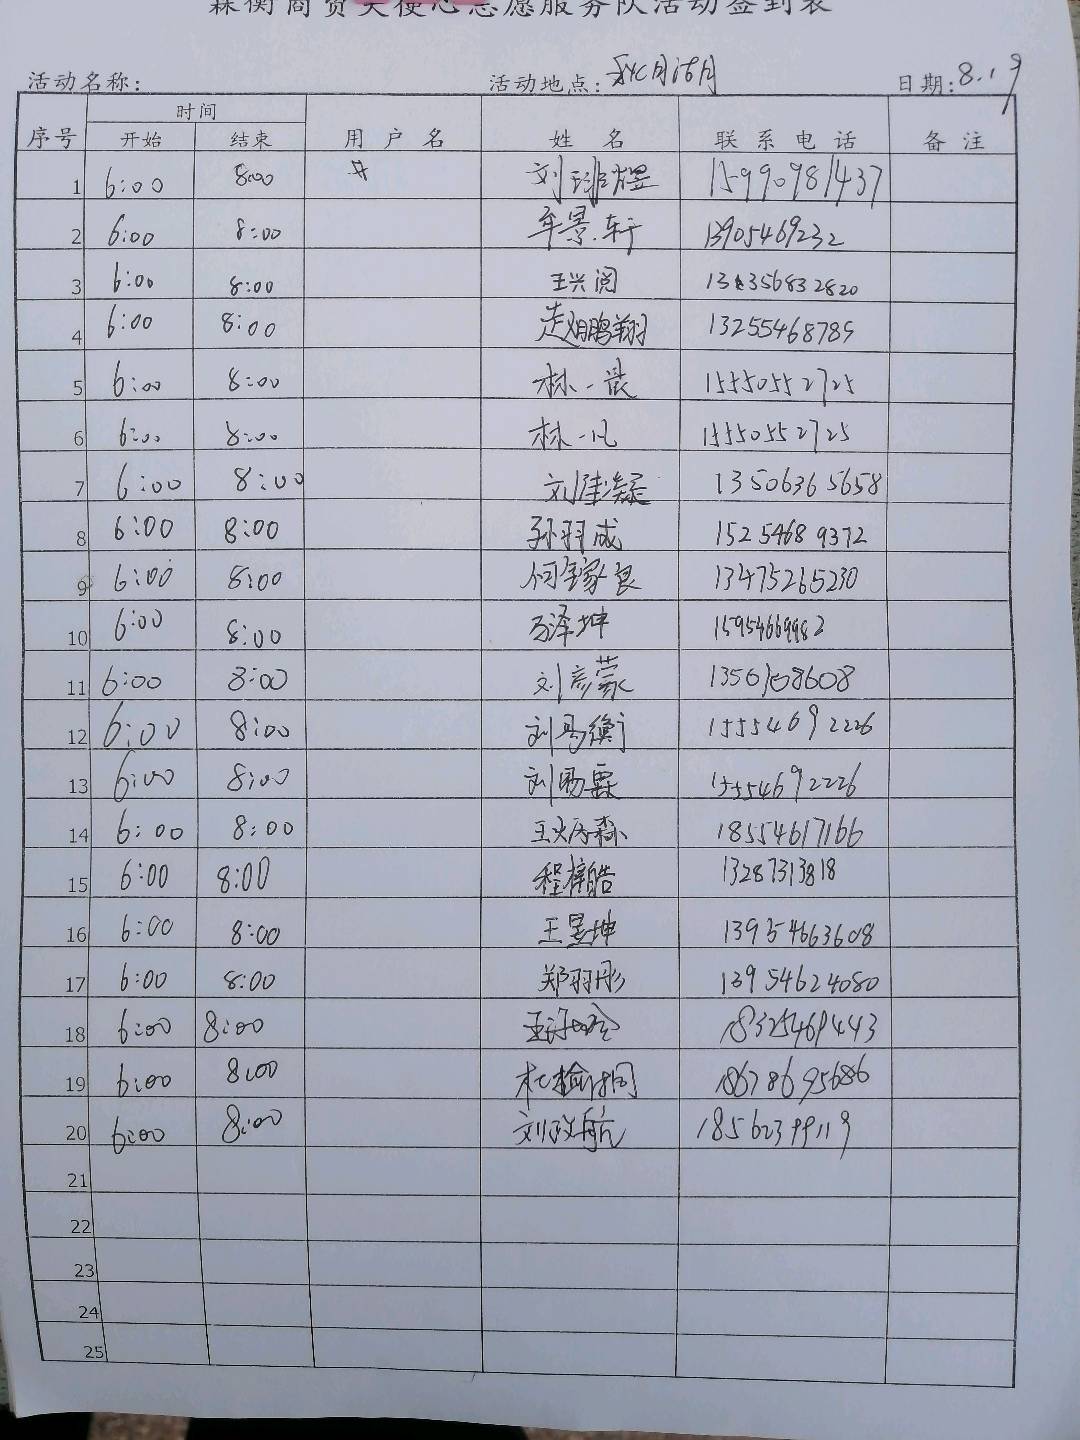 森衡商贸天使心志愿服务队活动签到表
活动名称: 活动地点: 日期:8.19
序号 时间 用户名 姓名 联系电话 备注
开始 结束
1 6:00 8:00 刘 15990981437
2 6:00 8:00 牟景轩 13905469232
3 6:00 8:00 王兴阅
4 6:00 8:00 赵鹏翔 13255468789
5 6:00 8:00 林一 15550552725
6 6:00 8:00 林一凡 15550552725
7 6:00 8:00 刘佳凝 13506365658
8 6:00 8:00 孙羽成 15254689372
9 6:00 8:00 何家良 13475265230
10 6:00 8:00 泽坤 15954669982
11 6:00 8:00 刘彦蒙 13561108608
12 6:00 8:00 刘易衡 15554692226
13 6:00 8:00 刘易霖 15554692226
14 6:00 8:00 王 森 18554617166
15 6:00 8:00 程梓皓 13287313818
16 6:00 8:00 王昱坤 13954663608
17 6:00 8:00 郑羽彤 13954624080
18 6:00 8:00 18325469443
19 6:00 8:00 杜 18678695686
20 6:00 8:00 刘政航 18562399119
21
22
23
24
25